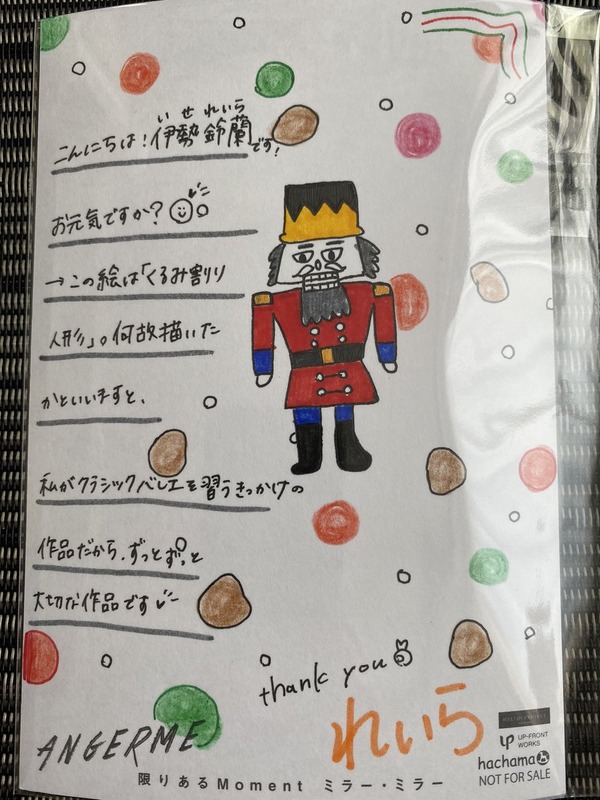 いせ れいら
こんにちは!伊勢 鈴蘭です!
お元気ですか?
→この絵は「くるみ割り
人形」。何故描いた
かといいますと、
私がクラシックバレエを習うきっかけの
作品だから、ずっとずっと
大切な作品です
thank you
れいら
ANGERME
UP-FRONT
WORKS
hachama
NOT FOR SALE
限りあるMoment ミラー・ミラー